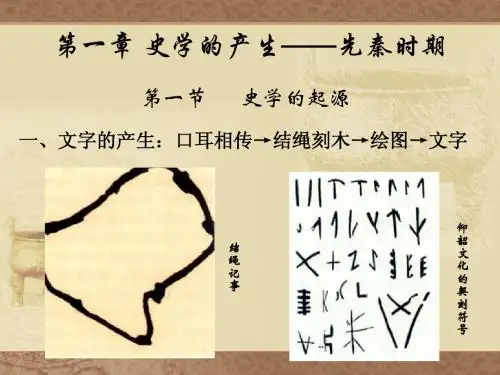 第一章 史学的产生——先秦时期
第一节 史学的起源
一、文字的产生：口耳相传→结绳刻木→绘图→文字
结绳记事
仰韶文化的契刻符号